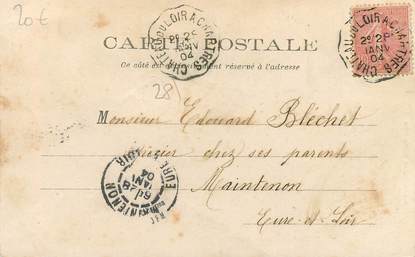 20€
CARTE POSTALE
Ce côté est exclusivement réservé à l'adresse
CHATEAUDULOIR A CHARTRES
2E
JANV
04
CHATEAUDULOIR A CHARTRES
2E
JANV
04
28
Monsieur Edouard Bléchet
chez ses parents
Maintenon
Eure-et-Loir
MAINTENON
EURE ET LOIR
JANV
04